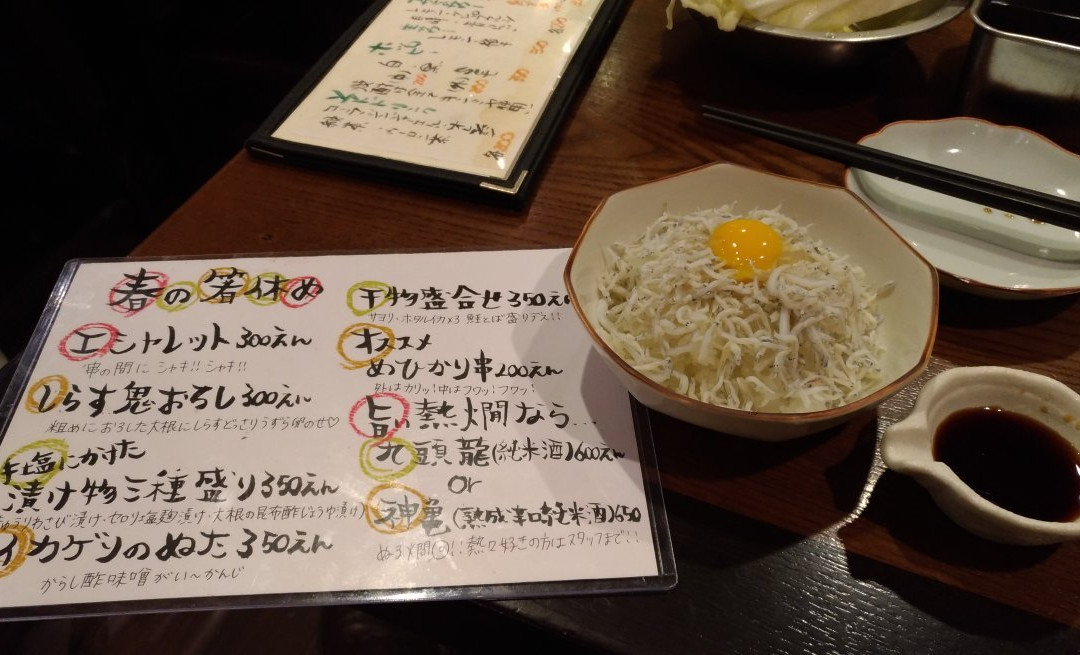 春の箸休め
エシャレット300えん
串の間にシャキ!!シャキ!!
しらす鬼おろし300えん
粗めにおろした大根にしらすどっさりうずら卵のせ♡
手塩にかけた
漬け物三種盛り350えん
きゅうりわさび漬け・セロリ塩麹漬け・大根の昆布酢じょうゆ漬け)
イカゲソのぬた350えん
からし酢味噌がい〜かんじ
干物盛合せ350えん
サヨリ・ホタルイカ×3 鮭とば盛りデス!!
オススメ
めひかり串200えん
外はカリッ!中はフワッ!フワッ!
旨い熱燗なら...
九頭龍(純米酒)600えん
or
神亀(熟成辛口純米酒)650
ぬる燗 熱々好きの方はスタッフまで!!